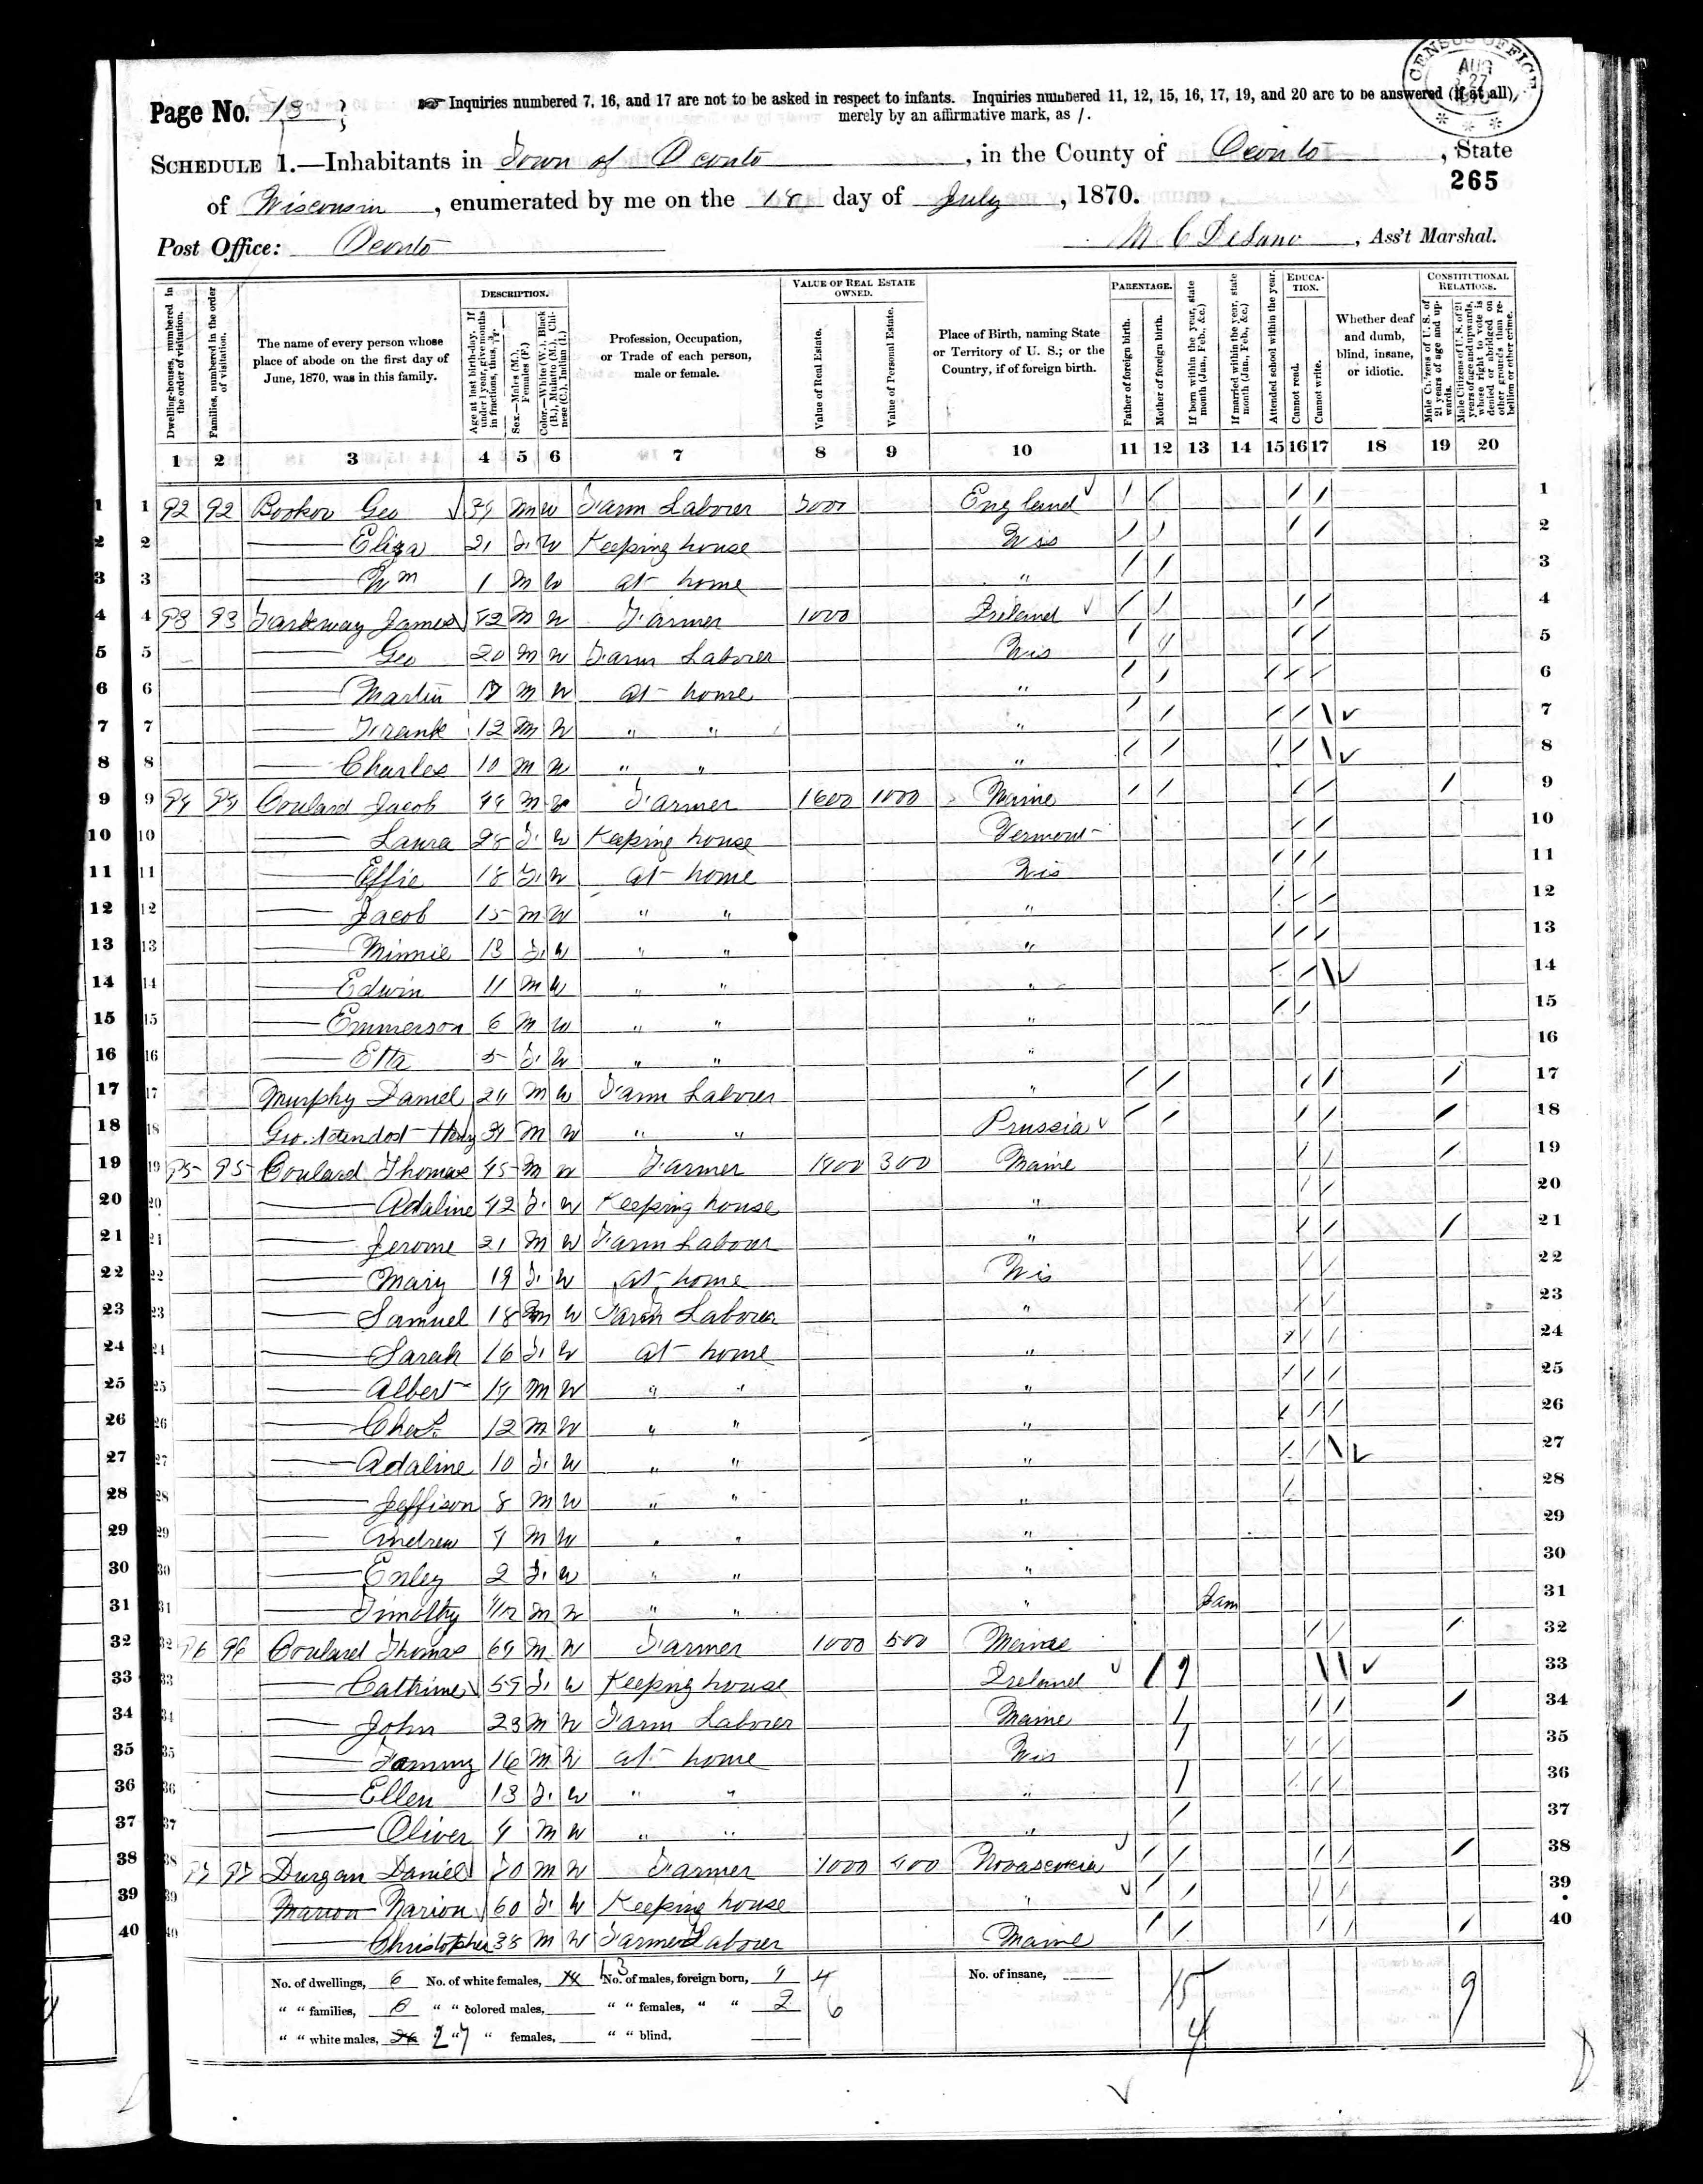 CENSUS OFFICE
AUG
27
Page No. 13
Inquiries numbered 7, 16, and 17 are not to be asked in respect to infants. Inquiries numbered 11, 12, 15, 16, 17, 19, and 20 are to be answered (if at all)
merely by an affirmative mark, as /.
SCHEDULE 1.—Inhabitants in Town of Oconto, in the County of Oconto, State
265
of Wisconsin, enumerated by me on the 18 day of July, 1870.
Post Office: Oconto
M C DeLano, Ass't Marshal.
Dwelling-houses, numbered in the order of visitation.
Families, numbered in the order of visitation.
The name of every person whose place of abode on the first day of June, 1870, was in this family.
DESCRIPTION.
Age at last birth-day. If under 1 year, give months in fractions, thus, 3/12.
Sex.—Males (M.), Females (F.)
Color.—White (W.), Black (B.), Mulatto (M.), Chinese (C.), Indian (I.)
Profession, Occupation, or Trade of each person, male or female.
VALUE OF REAL ESTATE OWNED.
Value of Real Estate.
Value of Personal Estate.
Place of Birth, naming State or Territory of U. S.; or the Country, if of foreign birth.
PARENTAGE.
Father of foreign birth.
Mother of foreign birth.
If born within the year, state month (Jan., Feb., &c.)
If married within the year, state month (Jan., Feb., &c.)
EDUCATION.
Attended school within the year.
Cannot read.
Cannot write.
Whether deaf and dumb, blind, insane, or idiotic.
CONSTITUTIONAL RELATIONS.
Male Citizens of U. S. of 21 years of age and upwards.
Male Citizens of U. S. of 21 years of age and upwards, whose right to vote is denied or abridged on other grounds than rebellion or other crime.
1 2 3 4 5 6 7 8 9 10 11 12 13 14 15 16 17 18 19 20
1 92 92 Geo M W Farm Laborer England / / / / 1
2 Eliza 21 F. W Keeping house Wis / / / / 2
3 Wm 1 M W at home " / / 3
4 93 93 James 52 M W Farmer 1000 Ireland / / / / 4
5 Geo 20 M W Farm Laborer Wis / / / / 5
6 Martin M W at home " / / / / / 6
7 Frank 12 M W " " " / / / / \ 7
8 Charles 10 M W " " " / / / / \ 8
9 94 94 Coulard Jacob 44 M W Farmer 1600 1000 Maine / / / / / 9
10 Laura F. W Keeping house Vermont / / 10
11 Effie 18 F. W at home Wis / / / 11
12 Jacob 15 M W " " " / / / 12
13 Minnie 13 F. W " " " / / / 13
14 Edwin 11 M W " " " / / \ 14
15 Emmerson 6 M W " " " / / 15
16 Etta 5 F. W " " " 16
17 Murphy Daniel 24 M W Farm Laborer " / / / / / 17
18 M W " " Prussia / / / / / 18
19 95 95 Coulard Thomas 45 M W Farmer 300 Maine / / / 19
20 Adaline 42 F. W Keeping house " / / 20
21 Jerome 21 M W Farm Laborer " / / / 21
22 Mary 19 F. W at home Wis / / 22
23 Samuel 18 M W Farm Laborer " / / 23
24 Sarah 16 F. W at home " / / / 24
25 Albert 14 M W " " " / / / 25
26 12 M W " " " / / / 26
27 Adaline 10 F. W " " " / / \ 27
28 Jeffison 8 M W " " " / 28
29 Andrew 4 M W " " " 29
30 2 F. W " " " 30
31 Timothy M W " " " Jan 31
32 96 96 Coulard Thomas 64 M W Farmer 1000 500 Maine / / / 32
33 Cathrine 59 F. W Keeping house Ireland / / \ \ 33
34 John 23 M W Farm Laborer Maine / / / / 34
35 Tommy 16 M W at home Wis / / / / 35
36 Ellen 13 F. W " " " / / / / 36
37 Oliver 4 M W " " " / 37
38 97 97 Durgan Daniel 70 M W Farmer 1000 400 Novascocia / / / / / 38
39 Marion 60 F. W Keeping house " / / / / 39
40 Christopher 38 M W Farm Laborer Maine / / / / / 40
No. of dwellings, 6 No. of white females, 14 13 No. of males, foreign born, 4 4 No. of insane, 15 9
" " families, 6 " " colored males, " " females, " " 2 6
" " white males, 26 27 " " females, " " blind, 4